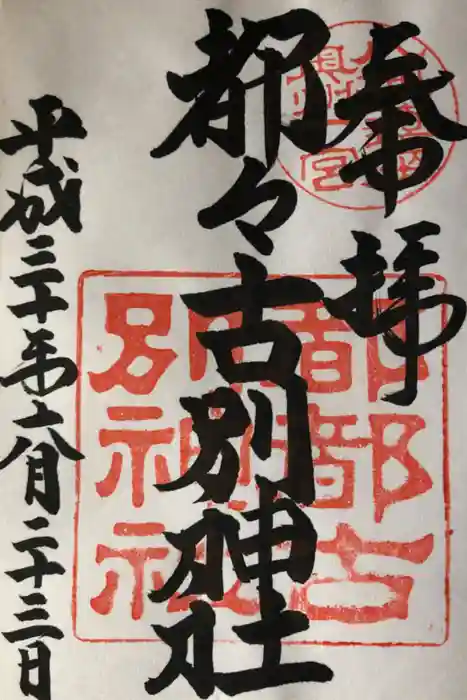 奉拝
都々古別神社
平成三十年六月二十三日
奥州一宮
都都古
別神社